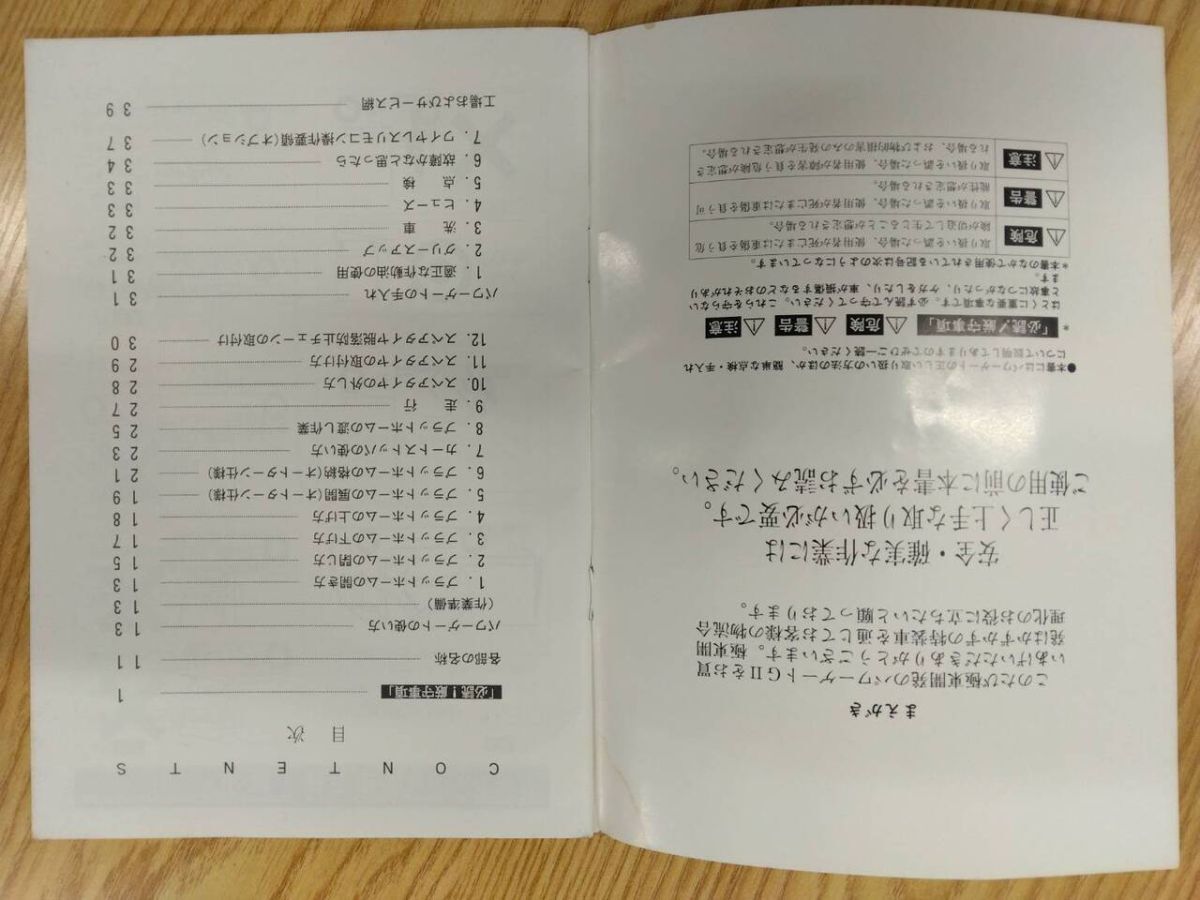 まえがき
このたび極東開発のパワーゲートGⅡGをお買
いあげいただきありがとうございます。極東開
発はかずかずの特装車を通じてお客様の物流合
理化のお役に立ちたいと願っております。
安全・確実な作業には
正しく上手な取り扱いが必要です。
ご使用の前に本書を必ずお読みください。
●本書にはパワーゲートの正しい取り扱いの方法のほか、簡単な点検・手入れ
について説明してありますのでぜひご一読ください。
* 「必読！厳守事項」 危険 警告 注意
はとくに重要な事項です。必ず読んで守ってください。これらを守らない
と事故につながったり、ケガをしたり、車が損傷するなどのおそれがあり
ます。
*本書のなかで使用されている記号は次のようになっています。
危険 取り扱いを誤った場合、使用者が死亡または重傷を負う危
険が切迫して生じることが想定される場合。
警告 取り扱いを誤った場合、使用者が死亡または重傷を負う可
能性が想定される場合。
注意 取り扱いを誤った場合、使用者が傷害を負う危険が想定さ
れる場合、および物的損害のみの発生が想定される場合。
CONTENTS
目次
「必読！厳守事項」 1
各部の名称 11
パワーゲートの使い方 13
(作業準備) 13
1. プラットホームの開き方 13
2. プラットホームの閉じ方 15
3. プラットホームの下げ方 17
4. プラットホームの上げ方 18
5. プラットホームの展開(オートターン仕様) 19
6. プラットホームの格納(オートターン仕様) 21
7. カートストッパの使い方 23
8. プラットホームの渡し作業 25
9. 走行 27
10. スペアタイヤの外し方 28
11. スペアタイヤの取付け方 29
12. スペアタイヤ脱落防止チェーンの取付け 30
パワーゲートの手入れ 31
1. 適正な作動油の使用 31
2. グリースアップ 32
3. 洗車 32
4. ヒューズ 33
5. 点検 33
6. 故障かなと思ったら 34
7. ワイヤレスリモコン操作要領(オプション) 37
工場およびサービス網 39